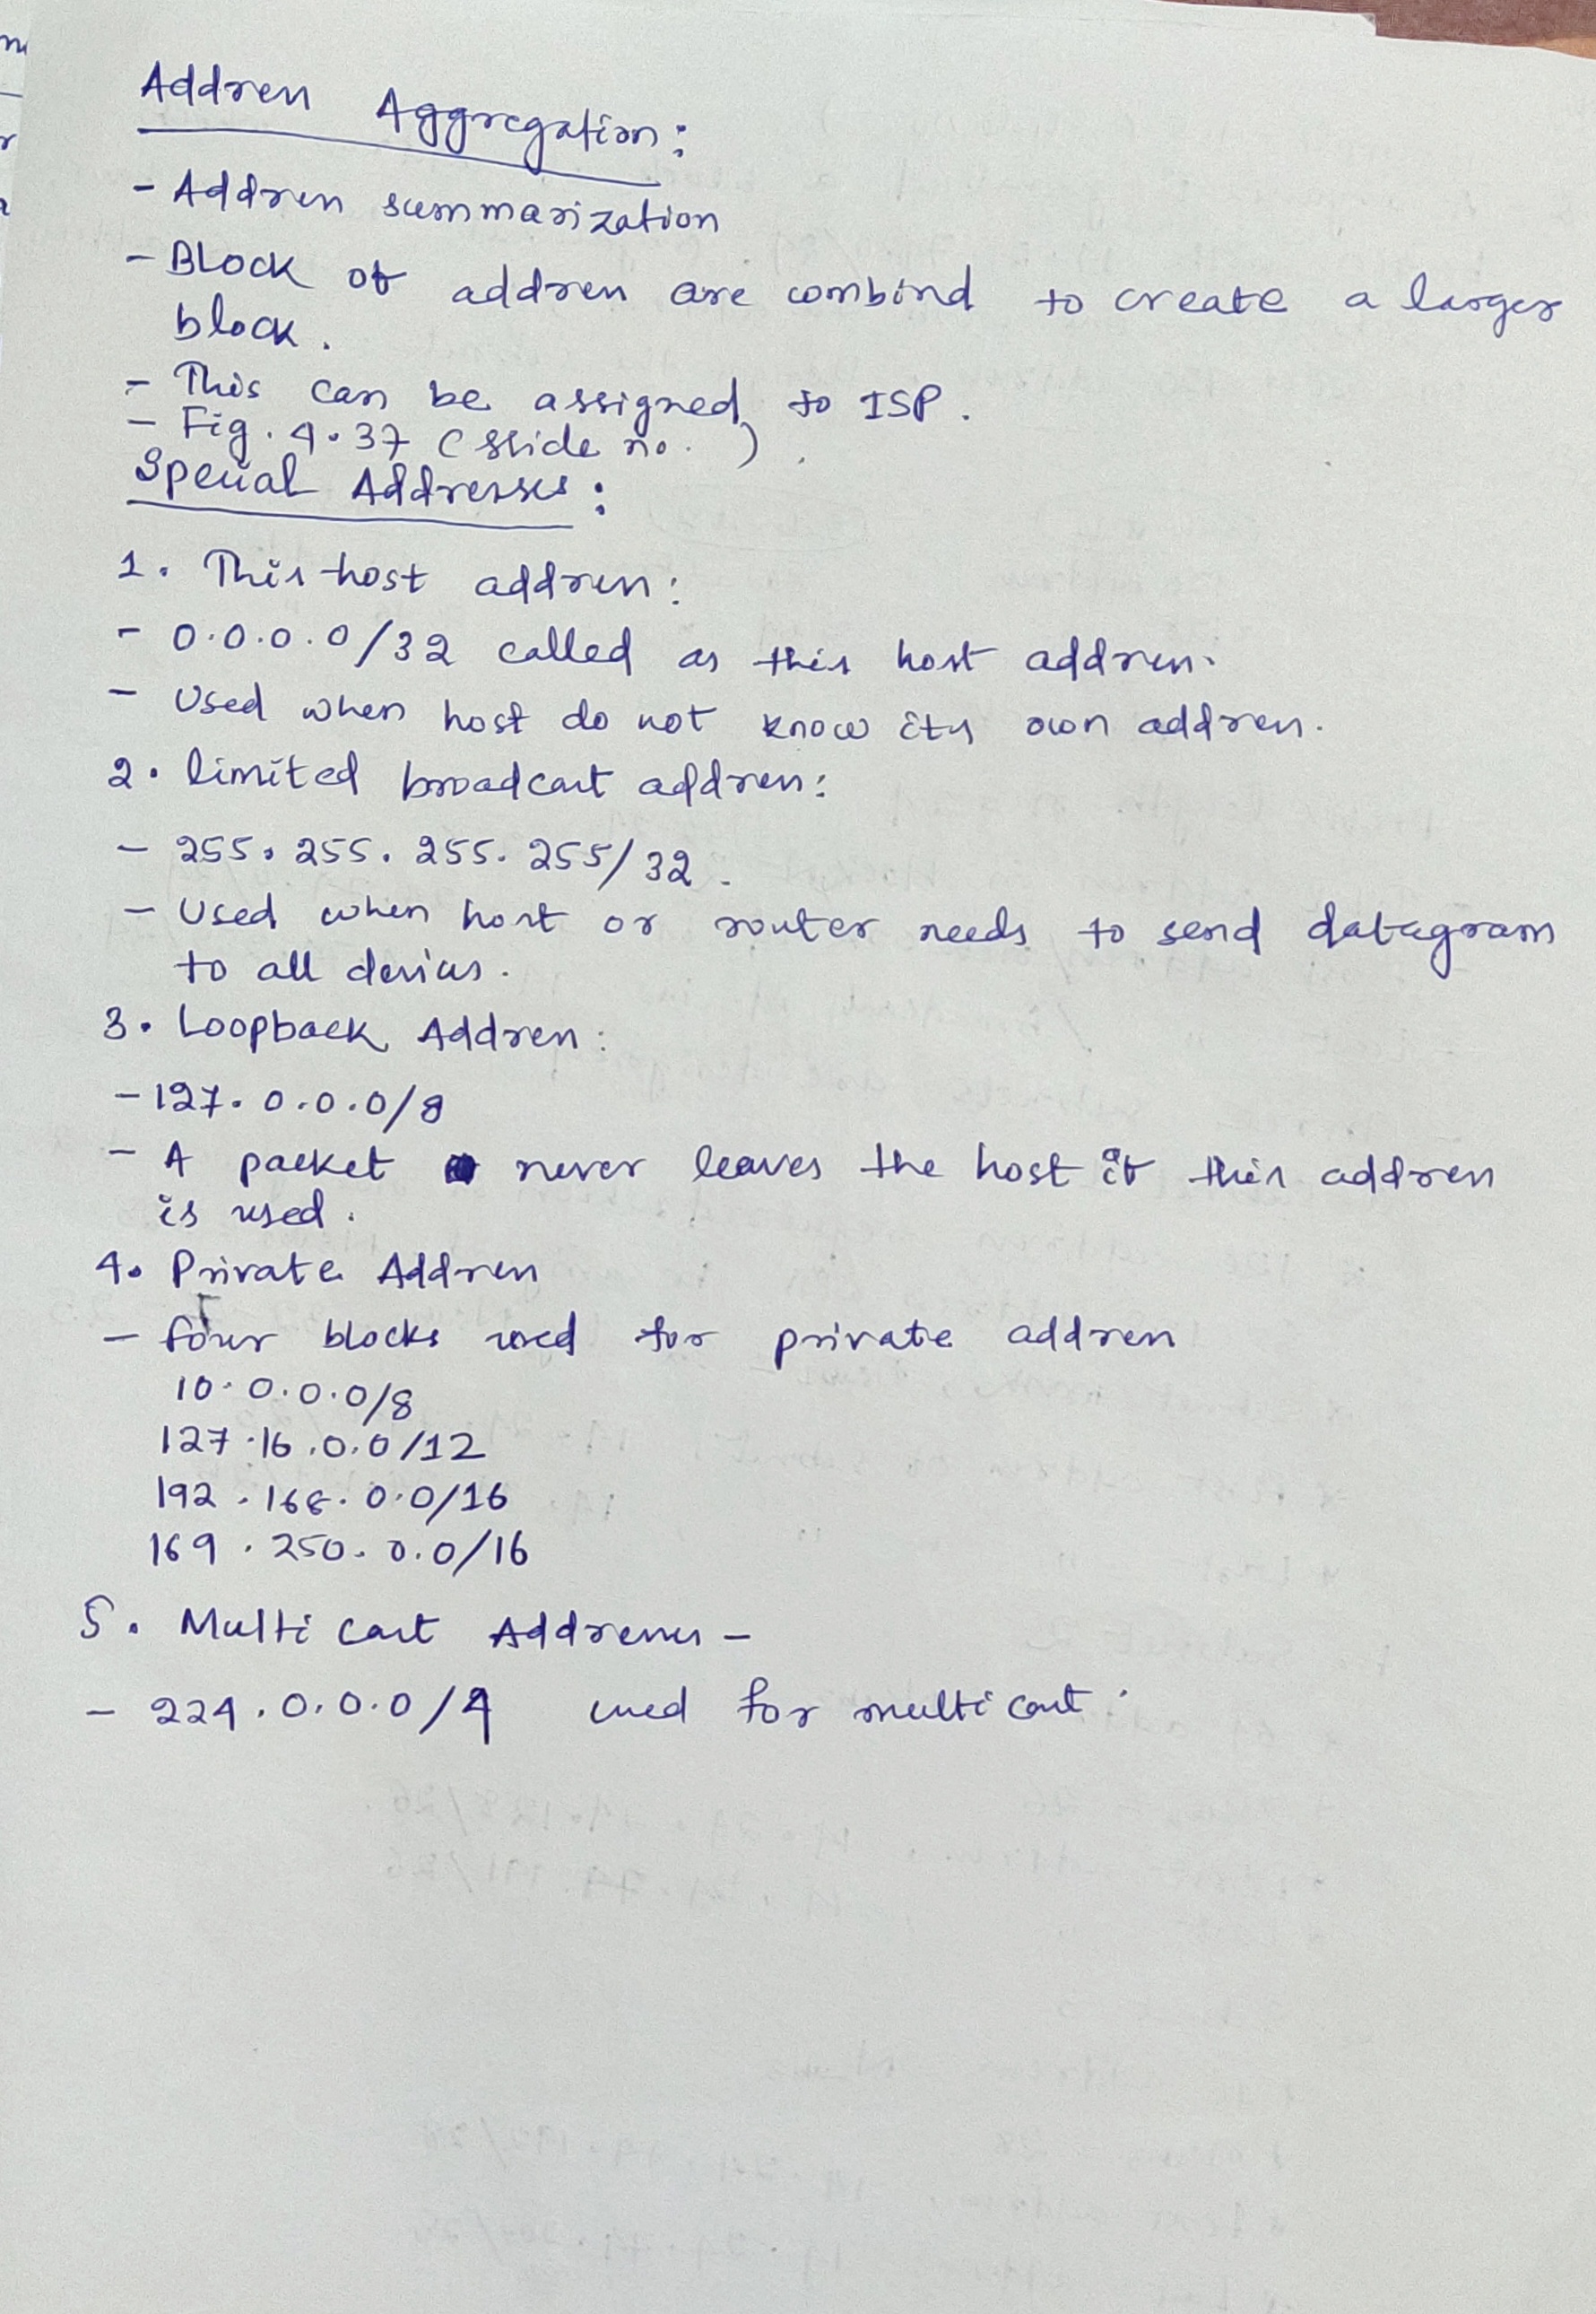 Address Aggregation:
- Address summarization
- Block of address are combind to create a larger
block.
- This can be assigned to ISP.
- Fig. 4.37 (slide no. ).
Special Addresses:
1. This-host address:
- 0.0.0.0/32 called as this host address.
- Used when host do not know its own address.
2. limited broadcast address:
- 255.255.255.255/32.
- Used when host or router needs to send datagram
to all devices.
3. Loopback Address:
- 127.0.0.0/8
- A packet never leaves the host if this address
is used.
4. Private Address
- four blocks used for private address
10.0.0.0/8
127.16.0.0/12
192.168.0.0/16
169.250.0.0/16
5. Multicast Addresses -
- 224.0.0.0/4 used for multicast.